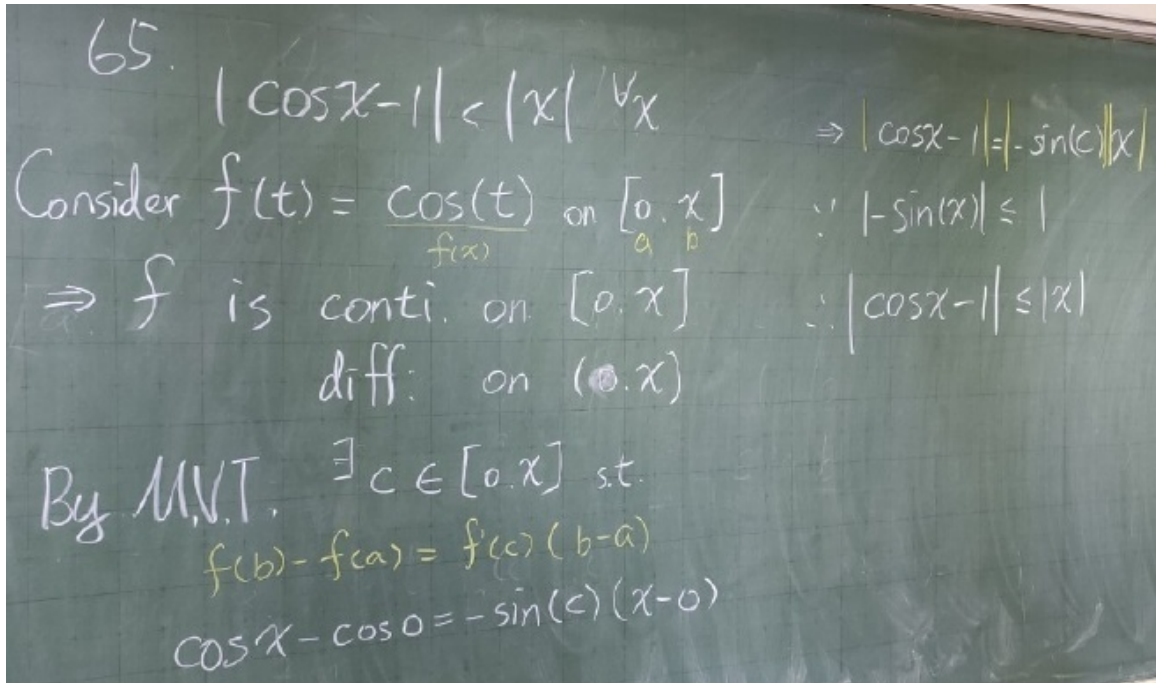 65.
|cosx-1| < |x| ∀x
Consider f(t) = cos(t) on [0.x]
f(x) a b
⇒ f is conti. on [0.x]
diff: on (0.x)
By M.V.T. ∃c ∈ [0.x] s.t.
f(b)-f(a) = f'(c)(b-a)
cosx-cos0 = -sin(c)(x-0)
⇒ |cosx-1|=|-sin(c)||x|
∵ |-sin(x)| ≤ 1
∴ |cosx-1| ≤ |x|